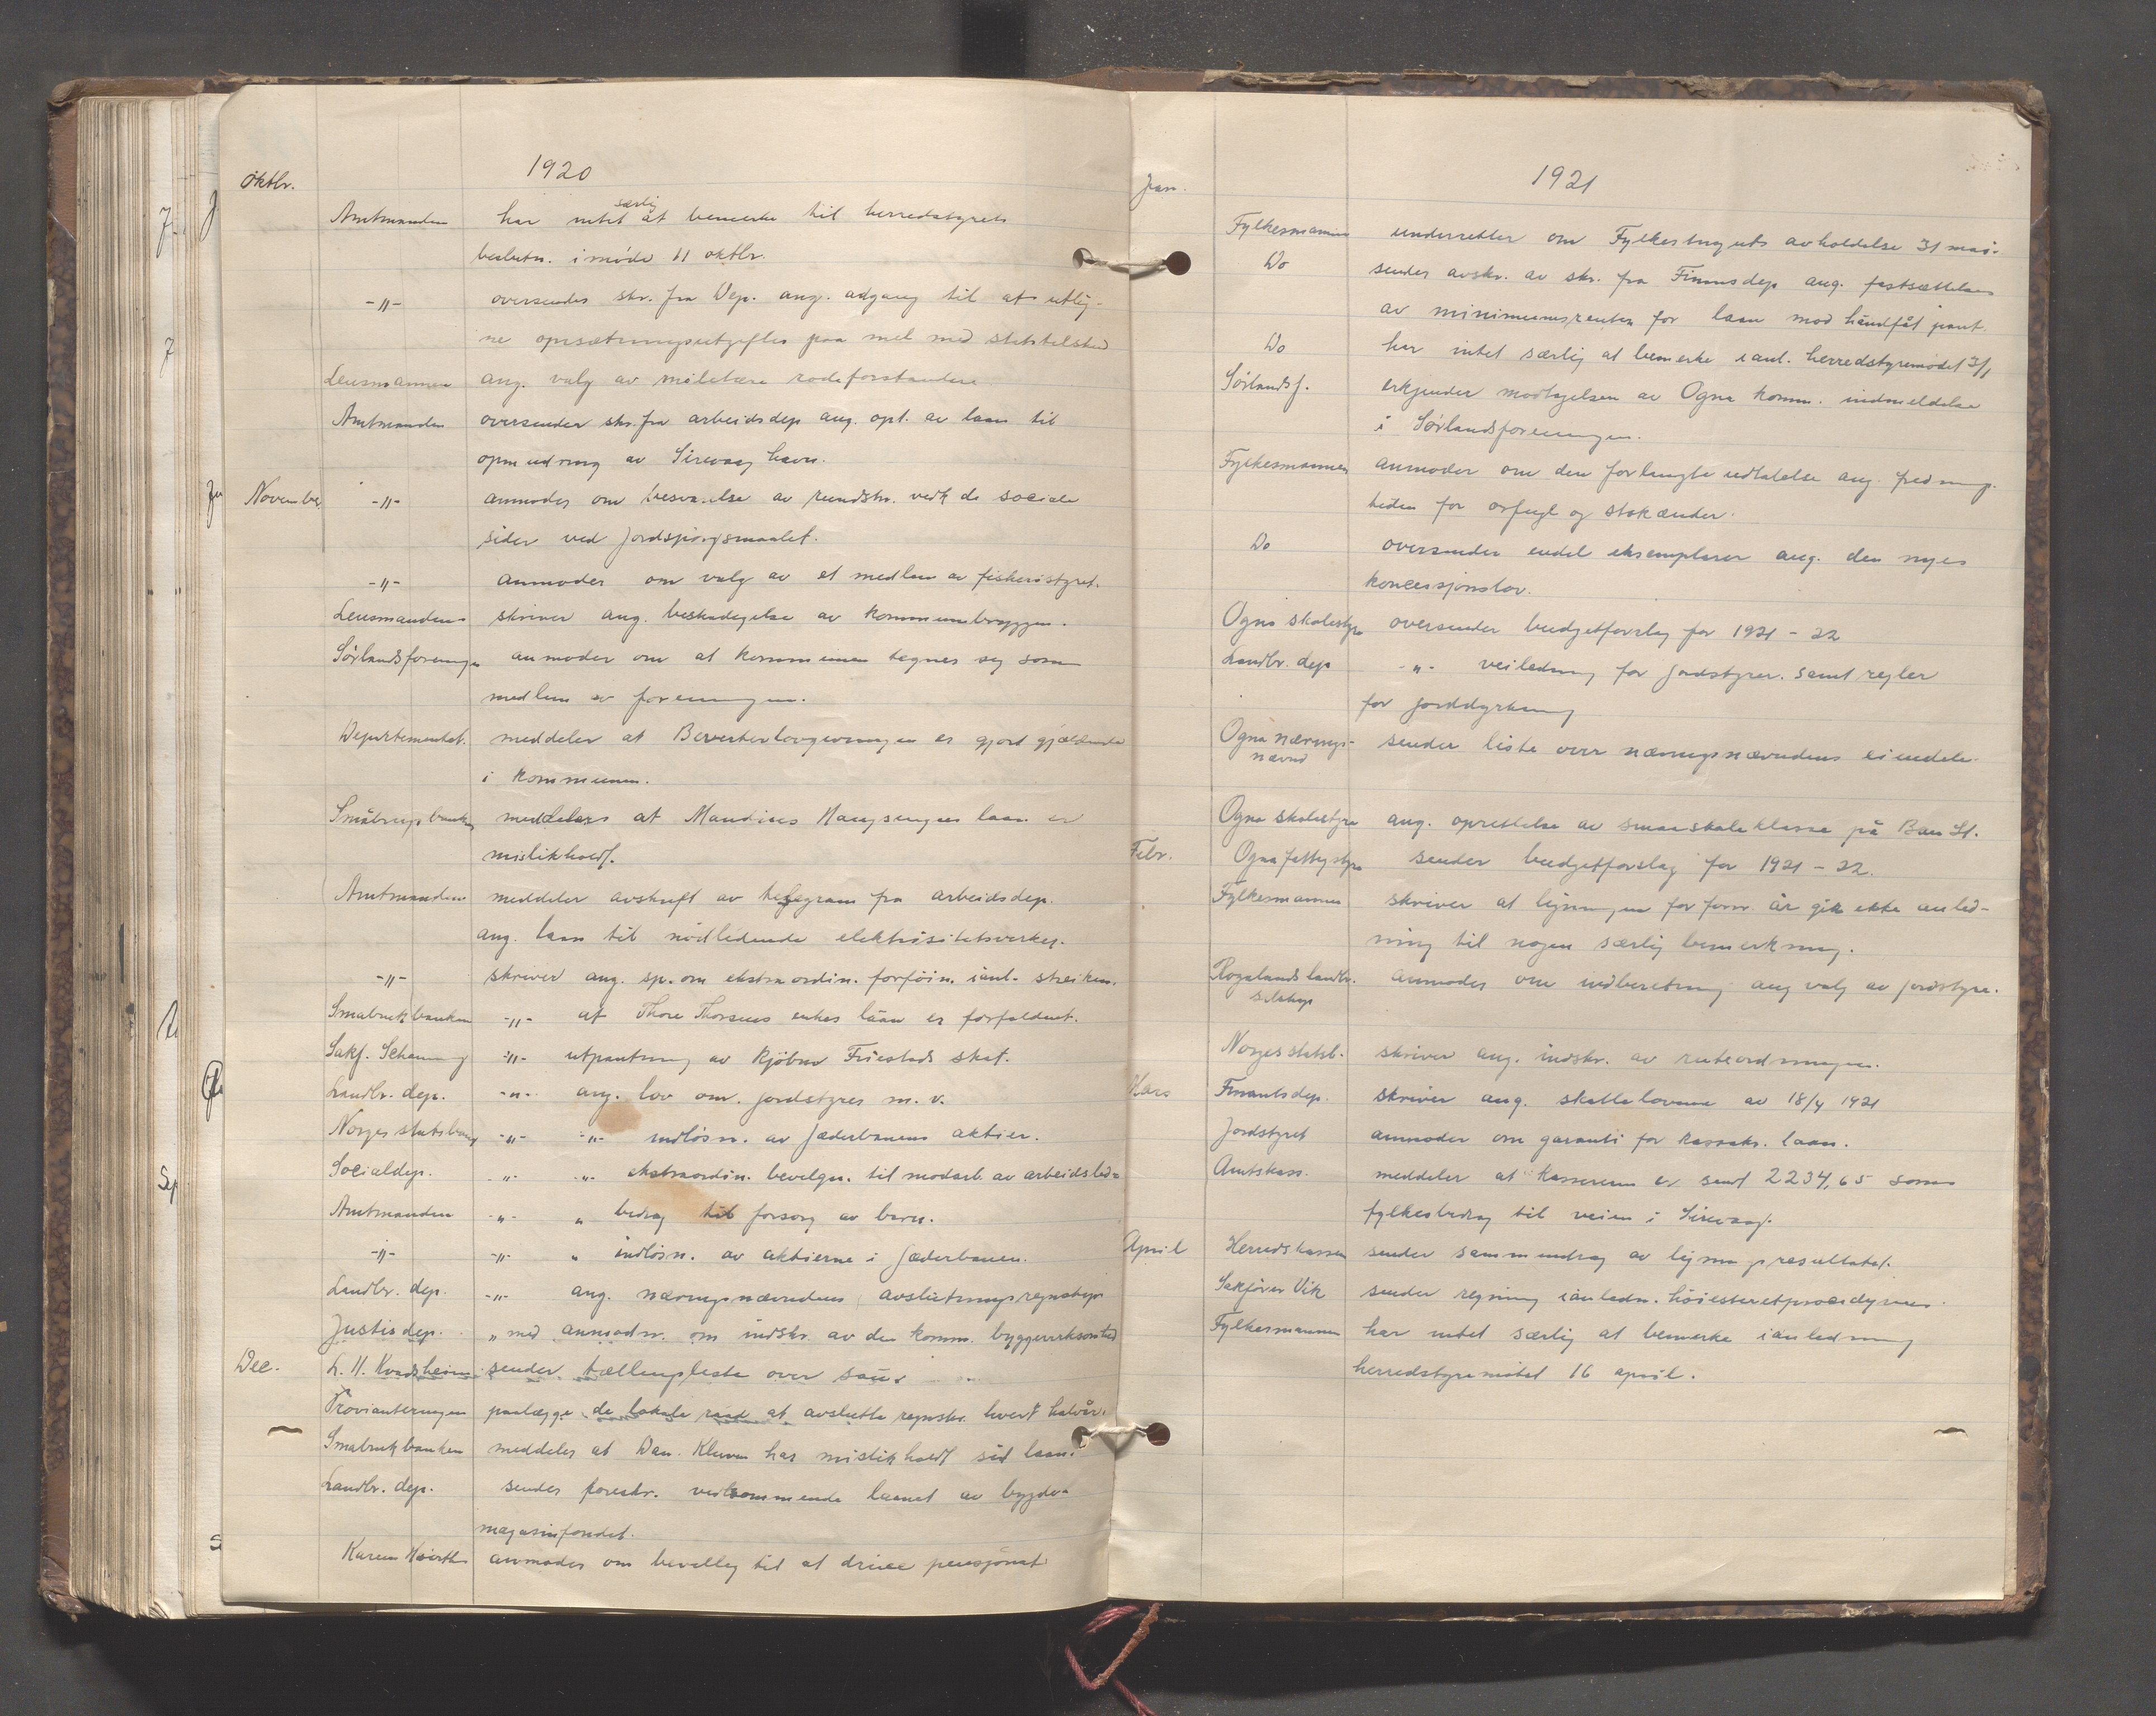 1920
Oktbr.
Amtmanden har intet særlig at bemerke til herredstyrets
beslutn. i møde 11 oktbr.
-"- oversendes skr. fra Dep. ang. adgang til at utlig-
ne opsætningsutgifter paa mel med statstilskud
Lensmannen ang. valg av militære rodeforstandere.
Amtmanden oversender skr. fra arbeidsdep ang. opt. av laan til
opmudring av Sirevaag havn.
November -"- anmodes om besvarelse av rundskr. vedk de sociale
sider ved jordspörgsmaalet.
-"- anmoder om valg av et medlem av fiskeristyret.
Lensmanden skriver ang. beskadigelse av kommunebryggen.
Sörlandsforeningen anmoder om at kommunen tegner seg som
medlem av foreningen.
Departementet. meddeler at Beverterlovgivningen er gjort gjældende
i kommunen.
Småbrugsbanken meddeler at Haugsengens laan er
mislikholdt.
Amtmanden meddeler avskrift av telegram fra arbeidsdep.
ang. laan til nödlidende elektrisitetsverker.
-"- skriver ang. sp. om ekstraordin. forföin. ianl. streiken.
Smabrukbanken -"- at Thore Thorsens enkes låan er forfaldent.
Sakf. -"- utpantning av kjöbm Friestads skat.
Landbr. dep. -"- ang. lov om. jordstyrer m. v.
Norges statsbaner -"- -"- indlösn. av Jæderbanens aktier.
Socialdep. -"- -"- ekstraordin. bevilgn. til modarb. av arbeidsled-
Amtmanden -"- " bidrag til forsorg av barn.
-"- -"- " indlösn. av aktierne i Jæderbanen.
Landbr. dep. -"- ang. næringsnævndens avslutningsregnskap
Justisdep. " med anmodn. om indskr. av den komm. byggevirksomhed
Dec. L. H. Kvadsheim sender. tællingsliste over sau.
Provianteringen paalægge de lokale raad at avslutte regnsk. hvert halvår.
Smabrukbanken meddeler at Dan. har mislikholdt sit laan.
Landbr. dep. sender foreskr. vedkommende laanet av bygde-
magasinfondet.
Karen anmoder om bevilling til at drive pensjonat
1921
Jan.
Fylkesmannen underretter om Fylkestingets avholdelse 31 mai.
Do sender avskr. av skr. fra Finansdep ang. fastsættelsen
av minimumsrenten for laan mod håndfåt pant.
Do har intet særlig at bemerke i anl. herredstyremødet 3/1
Sörlandsf. erkjender modtagelsen av Ogna komm. indmeldelse
i Sörlandsforeningen.
Fylkesmannen anmoder om den forlangte uttalelse ang. fredning-
tiden for orfugl og stokænder.
Do oversender endel eksemplarer ang. den nye
koncessjonslov.
Ogna skolestyre oversender budgetforslag for 1921 - 22
Landbr. dep -"- veiledning for jordstyrer. samt regler
for jorddyrkning
Ogna nærings-
nævnd sender liste over næringsnævndens eiendele.
Ogna skolestyre ang. oprettelse av smaaskoleklasse på Brusand St.
Febr. Ogna fattigstyre sender budgetforslag for 1921 - 22.
Fylkesmannen skriver at ligningen for forr. år gik ekke anled-
ning til nogen særlig bemerkning.
Rogalands landbr.
selskap anmodes om indberetning ang valg av jordstyre.
Norges statsb. skriver ang. indskr. av ruteordningen.
Mars Finantsdep. skriver ang. skattelovene av 18/4 1921
Jordstyret anmoder om garanti for kassakr. laan.
Amtskass. meddeler at kassereren er sendt 2234,65 som
fylkesbidrag til veien i Sirevaag.
April Herredskassen sender sammendrag av ligningsresultatet.
Sakförer Vik sender regning i anledn. höiesteretprocedyren.
Fylkesmannen har intet særlig at bemerke i anledning
herredstyremötet 16 april.